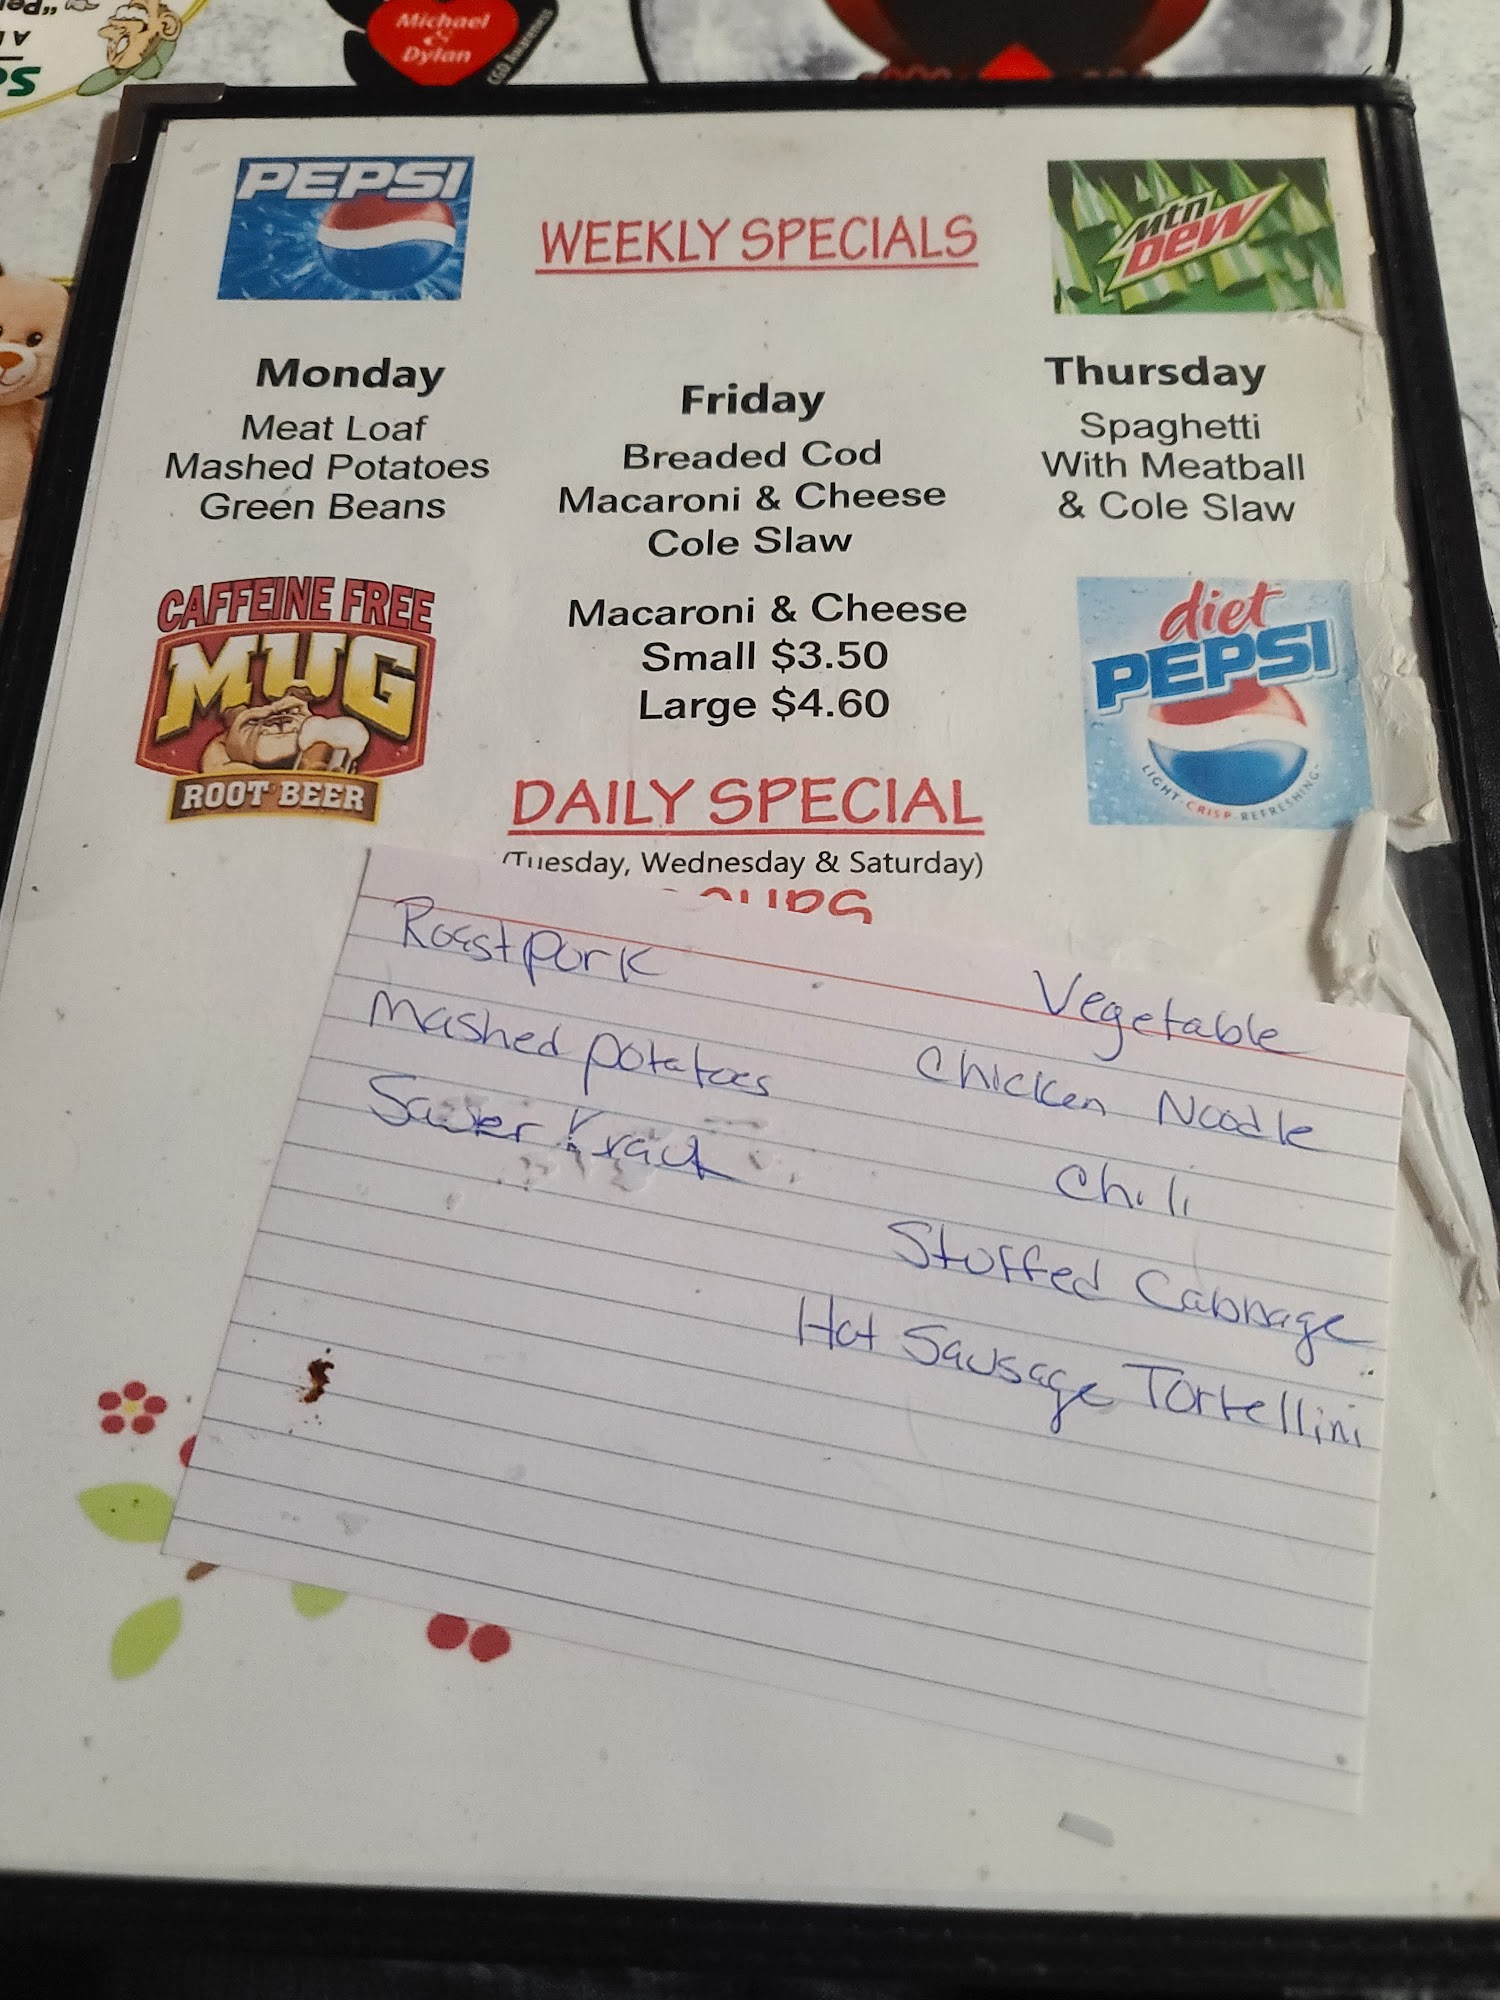 Michael
&
Dylan
PEPSI
WEEKLY SPECIALS
Mtn
DEW
Monday
Meat Loaf
Mashed Potatoes
Green Beans
Friday
Breaded Cod
Macaroni & Cheese
Cole Slaw
Thursday
Spaghetti
With Meatball
& Cole Slaw
CAFFEINE FREE
MUG
ROOT BEER
Macaroni & Cheese
Small $3.50
Large $4.60
diet
PEPSI
LIGHT·CRISP·REFRESHING
DAILY SPECIAL
(Tuesday, Wednesday & Saturday)
Roast pork
mashed potatoes
Sauer Kraut
Vegetable
Chicken Noodle
Chili
Stuffed Cabbage
Hot Sausage Tortellini